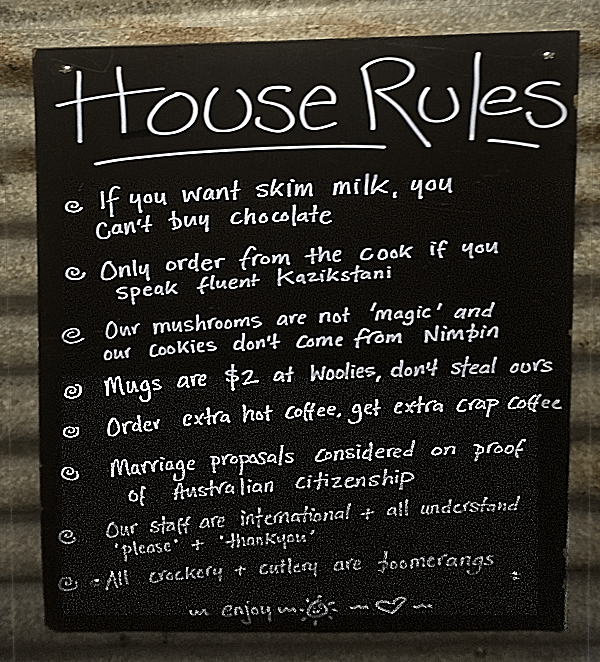 House Rules
If you want skim milk, you
Can't buy chocolate
Only order from the cook if you
speak fluent Kazikstani
Our mushrooms are not 'magic' and
our cookies don't come from Nimbin
Mugs are $2 at Woolies, don't steal ours
Order extra hot coffee, get extra crap coffee
Marriage proposals considered on proof
of Australian citizenship
Our staff are international + all understand
'please' + 'thankyou'
All crockery + cutlery are boomerangs
enjoy